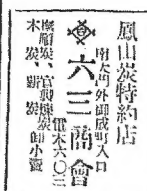 鳳山炭特約店
南大門外御成町入口
六三商會
電本六〇三
撫順炭、官製煉炭
木炭、薪炭 卸小賣